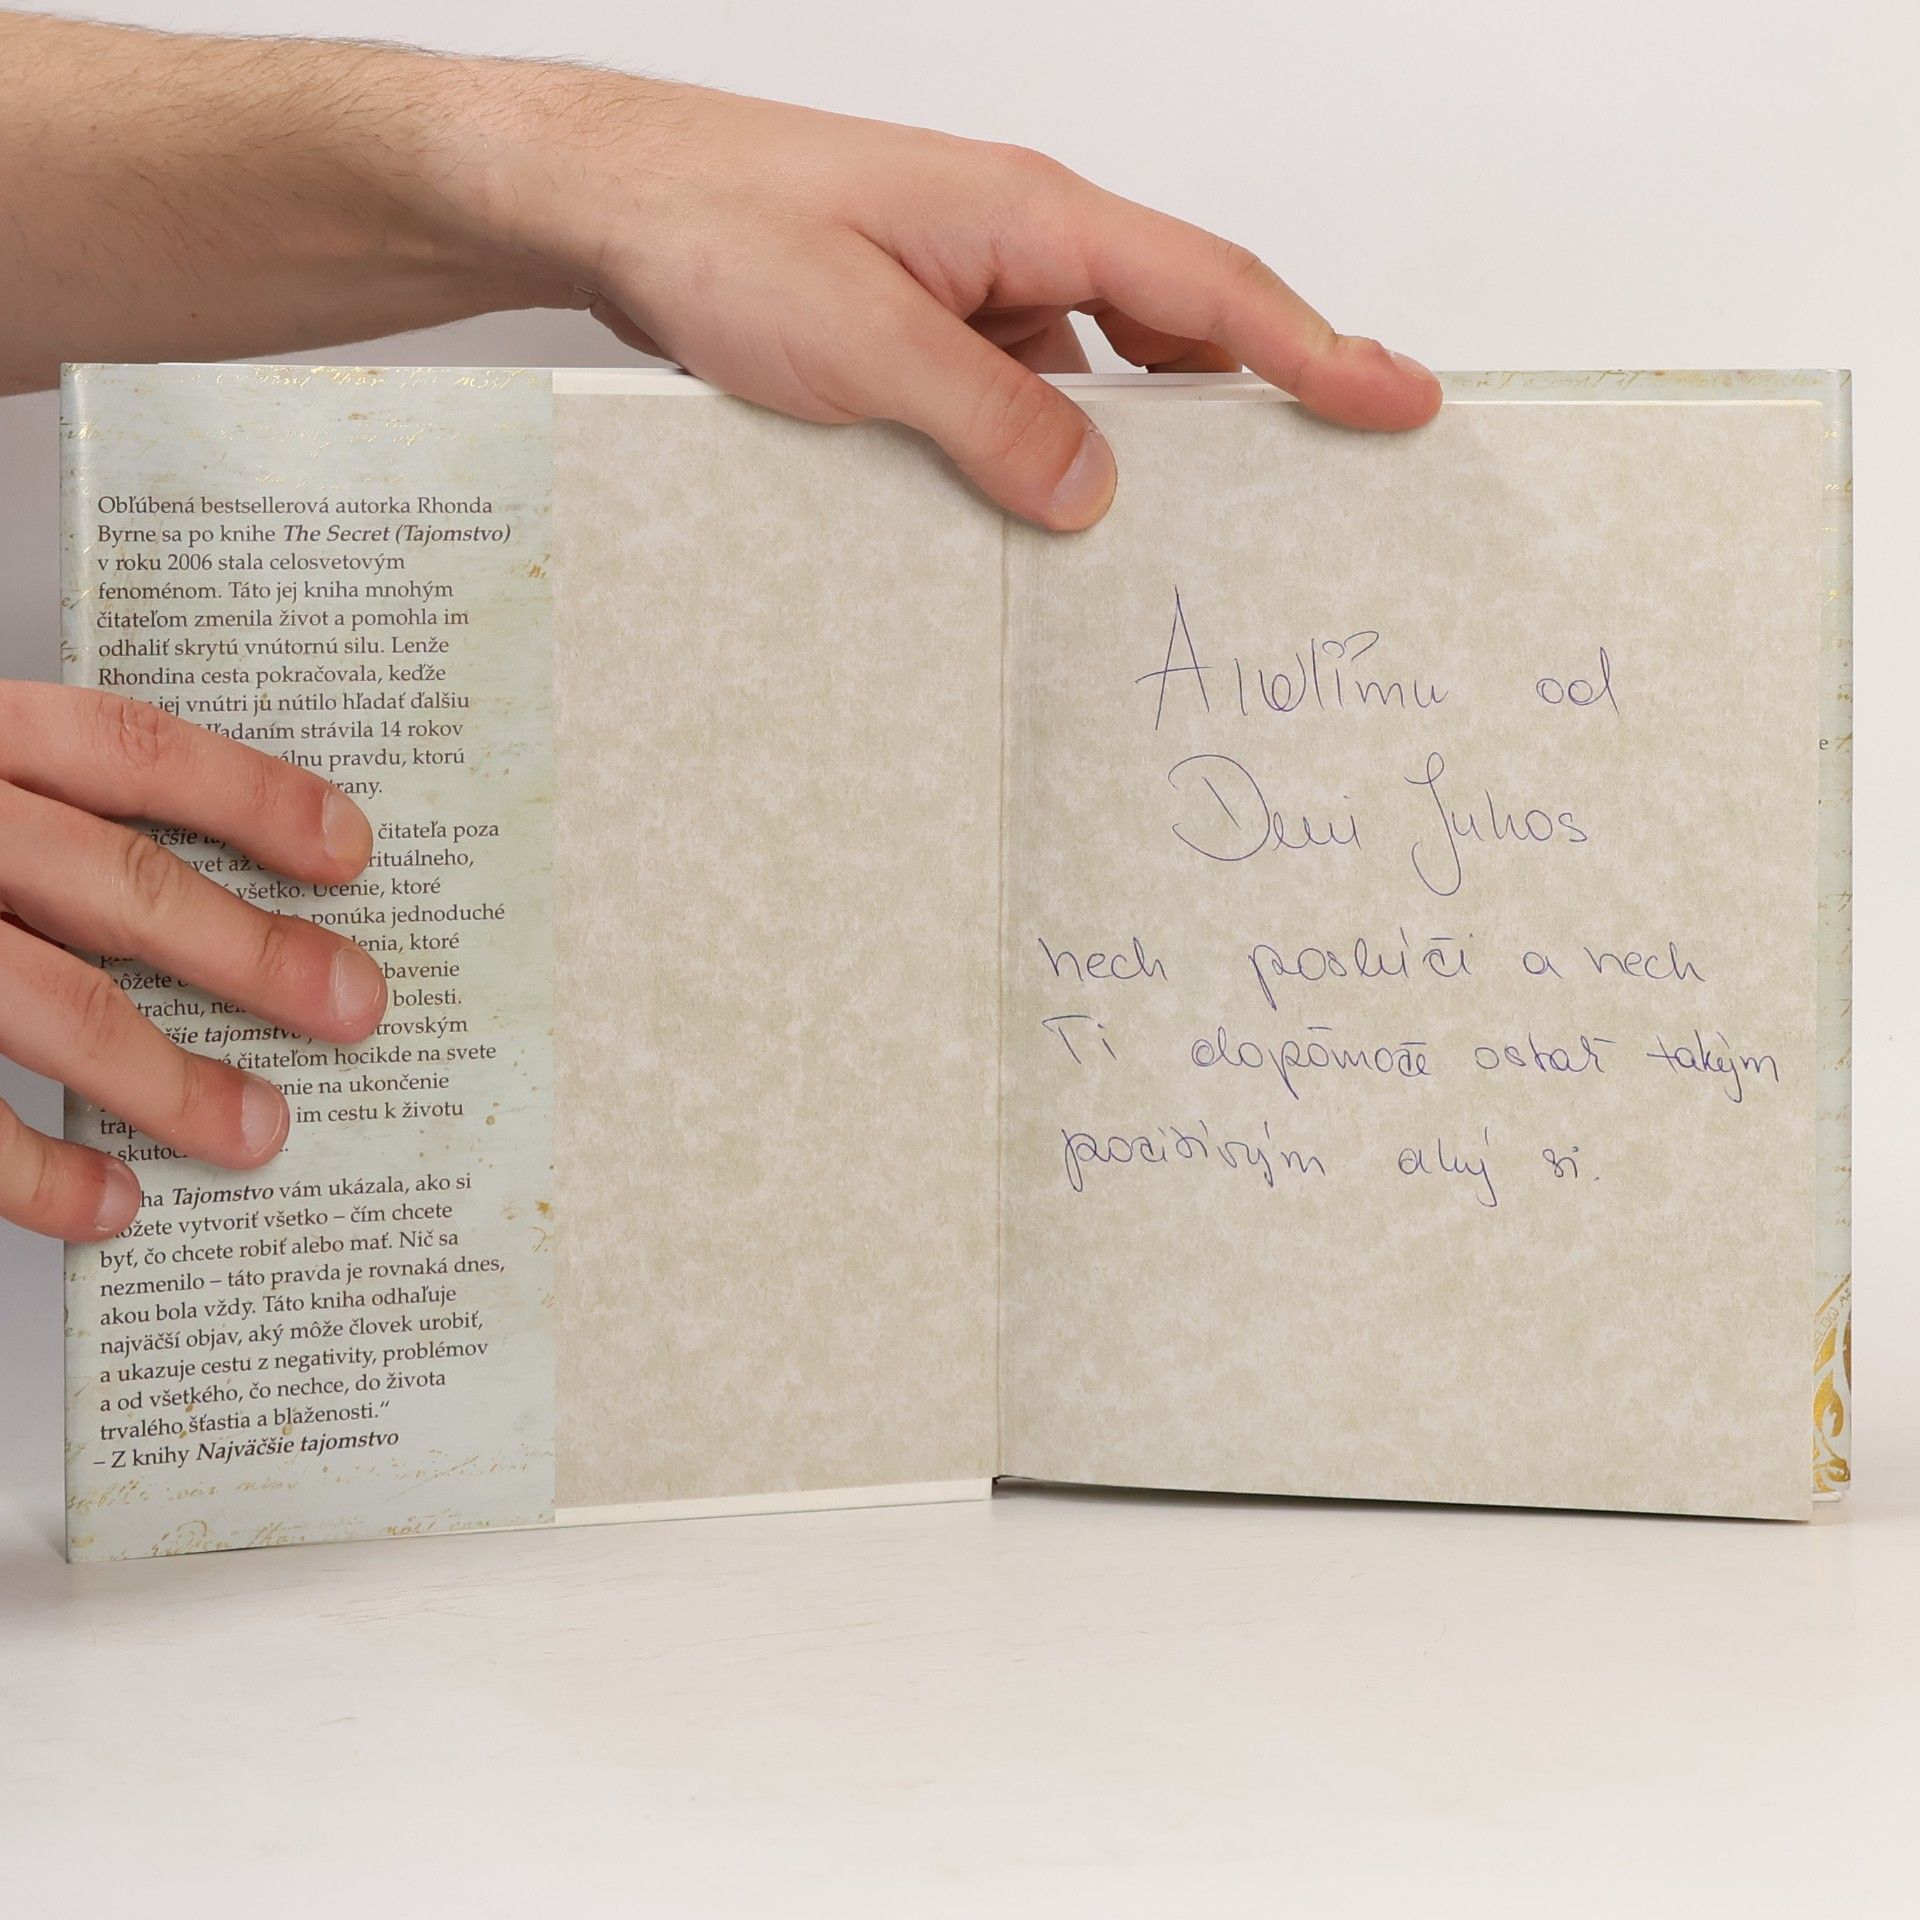 Obľúbená bestsellerová autorka Rhonda
Byrne sa po knihe The Secret (Tajomstvo)
v roku 2006 stala celosvetovým
fenoménom. Táto jej kniha mnohým
čitateľom zmenila život a pomohla im
odhaliť skrytú vnútornú silu. Lenže
Rhondina cesta pokračovala, keďže
jej vnútri ju nútilo hľadať ďalšiu
Hľadaním strávila 14 rokov
pravdu, ktorú
čitateľa poza
svet až
všetko. Učenie, ktoré
ponúka jednoduché
ktoré
bolesti.
tajomstvo
čitateľom hocikde na svete
na ukončenie
im cestu k životu
Tajomstvo vám ukázala, ako si
môžete vytvoriť všetko – čím chcete
byť, čo chcete robiť alebo mať. Nič sa
nezmenilo – táto pravda je rovnaká dnes,
akou bola vždy. Táto kniha odhaľuje
najväčší objav, aký môže človek urobiť,
a ukazuje cestu z negativity, problémov
a od všetkého, čo nechce, do života
trvalého šťastia a blaženosti.“
– Z knihy Najväčšie tajomstvo
od
Deni Juhos
nech poslúži a nech
Ti dopomože ostať takým
pozitívným aký si.